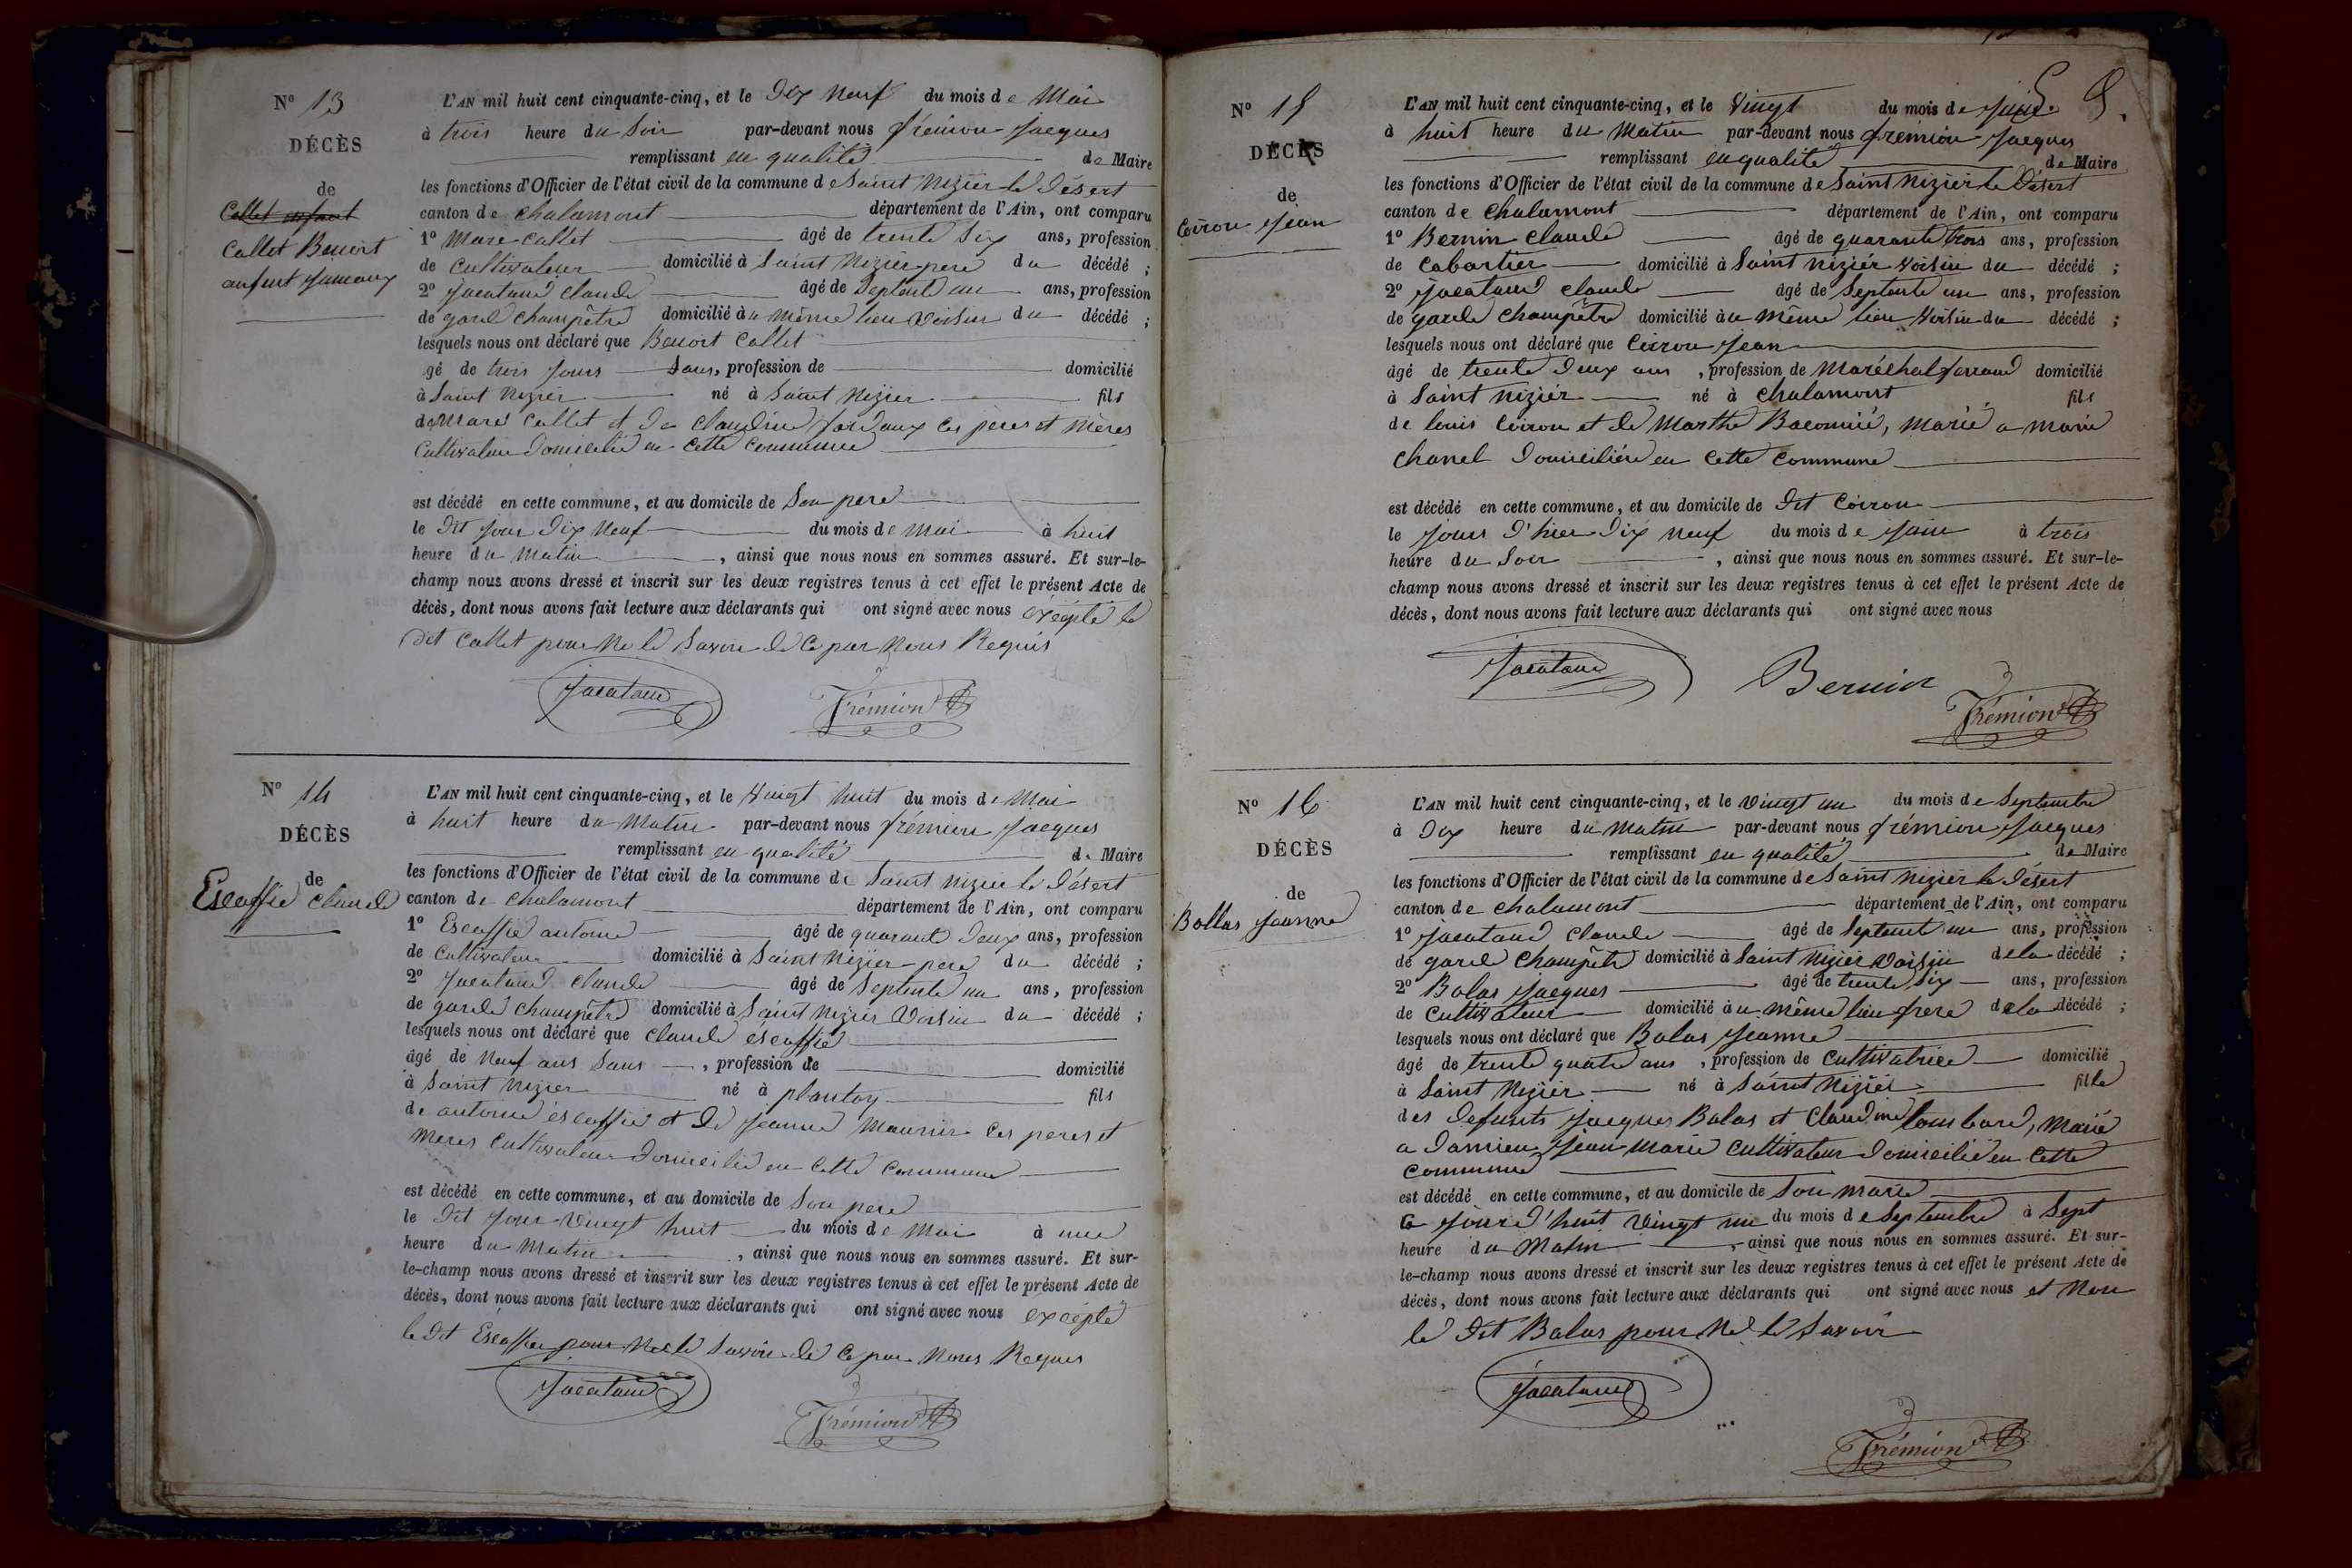 N° 13
DÉCÈS
de
Callet enfant
Callet Benoit
enfant Jumeaux
L'AN mil huit cent cinquante-cinq, et le Dix neuf du mois de Mai
à trois heure du Soir par-devant nous frémion Jacques
remplissant en qualité de Maire
les fonctions d'Officier de l'état civil de la commune de Saint Nizier le Désert
canton de chalamont département de l'Ain, ont comparu
1° Marc Callet âgé de trente Six ans, profession
de Cultivateur domicilié à Saint Nizier pere du décédé ;
2° Jacataud claude âgé de Septente un ans, profession
de garde champêtre domicilié au même lieu Voisin du décédé ;
lesquels nous ont déclaré que Benoit Callet
gé de trois Jours Sans, profession de domicilié
à Saint Nizier né à Saint Nizier fils
de Marc Callet et de claudine ces pères et mères
Cultivateur Domicilié en cette commune
est décédé en cette commune, et au domicile de Son pere
le Dit jour Dix Neuf du mois de Mai à huit
heure du Matin , ainsi que nous nous en sommes assuré. Et sur-le-
champ nous avons dressé et inscrit sur les deux registres tenus à cet effet le présent Acte de
décès, dont nous avons fait lecture aux déclarants qui ont signé avec nous excépté le
Dit Callet pour Ne le Savoir de Ce par Nous Requis
Jacataud Frémion
N° 14
DÉCÈS
de
Escoffié claude
L'AN mil huit cent cinquante-cinq, et le Vingt huit du mois de Mai
à huit heure du Matin par-devant nous frémion Jacques
remplissant en qualité de Maire
les fonctions d'Officier de l'état civil de la commune de Saint Nizier le Désert
canton de Chalamont département de l'Ain, ont comparu
1° Escoffié antoine âgé de quarante Deux ans, profession
de Cultivateur domicilié à Saint Nizier pere du décédé ;
2° Jacataud claude âgé de Septente un ans, profession
de garde champêtre domicilié à Saint Nizier Voisin du décédé ;
lesquels nous ont déclaré que claude éscoffié
âgé de Neuf ans Sans , profession de domicilié
à Saint Nizier né à plantay fils
de antoine éscoffié et de Jeanne Maunier Ces peres et
Meres Cultivateur Domicilié en Cette Commune
est décédé en cette commune, et au domicile de Son pere
le Dit jour Vingt huit du mois de Mai à une
heure du Matin , ainsi que nous nous en sommes assuré. Et sur-
le-champ nous avons dressé et inscrit sur les deux registres tenus à cet effet le présent Acte de
décès, dont nous avons fait lecture aux déclarants qui ont signé avec nous excépté
le Dit Escoffier pour Ne le Savoir de Ce par Nous Requis
Jacataud
Frémion
N° 15
DÉCÈS
de
Coiron Jean
L'AN mil huit cent cinquante-cinq, et le Vingt du mois de Juin
à huit heure du Matin par-devant nous frémion Jacques
remplissant en qualité de Maire
les fonctions d'Officier de l'état civil de la commune de Saint Nizier le Désert
canton de Chalamont département de l'Ain, ont comparu
1° Bernin claude âgé de quarante trois ans, profession
de Cabartier domicilié à Saint Nizier Voisin du décédé ;
2° Jacataud claude âgé de Septente un ans, profession
de garde champêtre domicilié au même lieu Voisin du décédé ;
lesquels nous ont déclaré que Coiron Jean
âgé de trente Deux ans , profession de Maréchal ferrand domicilié
à Saint Nizier né à Chalamont fils
de louis Coiron et de Marthe Baconnié, Marié a Marie
Chanel Domiciliée en Cette Commune
est décédé en cette commune, et au domicile de Dit Coiron
le Jours D'hier Dix neuf du mois de Juin à trois
heure du Soir , ainsi que nous nous en sommes assuré. Et sur-le-
champ nous avons dressé et inscrit sur les deux registres tenus à cet effet le présent Acte de
décès, dont nous avons fait lecture aux déclarants qui ont signé avec nous
Jacataud Bernin
Frémion
N° 16
DÉCÈS
de
Ballas Jeanne
L'AN mil huit cent cinquante-cinq, et le Vingt un du mois de Septembre
à Dix heure du Matin par-devant nous frémion Jacques
remplissant en qualité de Maire
les fonctions d'Officier de l'état civil de la commune de Saint Nizier le Désert
canton de Chalamont département de l'Ain, ont comparu
1° Jacataud Claude âgé de Septente un ans, profession
de garde Champêtre domicilié à Saint Nizier Voisin de la décédé ;
2° Balas Jacques âgé de trente Six ans, profession
de Cultivateur domicilié au même lieu frere de la décédé ;
lesquels nous ont déclaré que Balas Jeanne
âgé de trente quatre ans , profession de Cultivatrice domicilié
à Saint Nizier né à Saint Nizier fille
des Defunts Jacques Balas et Claudine lombard, Marié
a Damien Jean Marie Cultivateur Domicilié en Cette
Commune
est décédé en cette commune, et au domicile de Son Marie
Ce Jourd'huit Vingt un du mois de Septembre à Sept
heure du Matin , ainsi que nous nous en sommes assuré. Et sur-
le-champ nous avons dressé et inscrit sur les deux registres tenus à cet effet le présent Acte de
décès, dont nous avons fait lecture aux déclarants qui ont signé avec nous et Non
le Dit Balas pour Ne le Savoir
Jacataud
Frémion